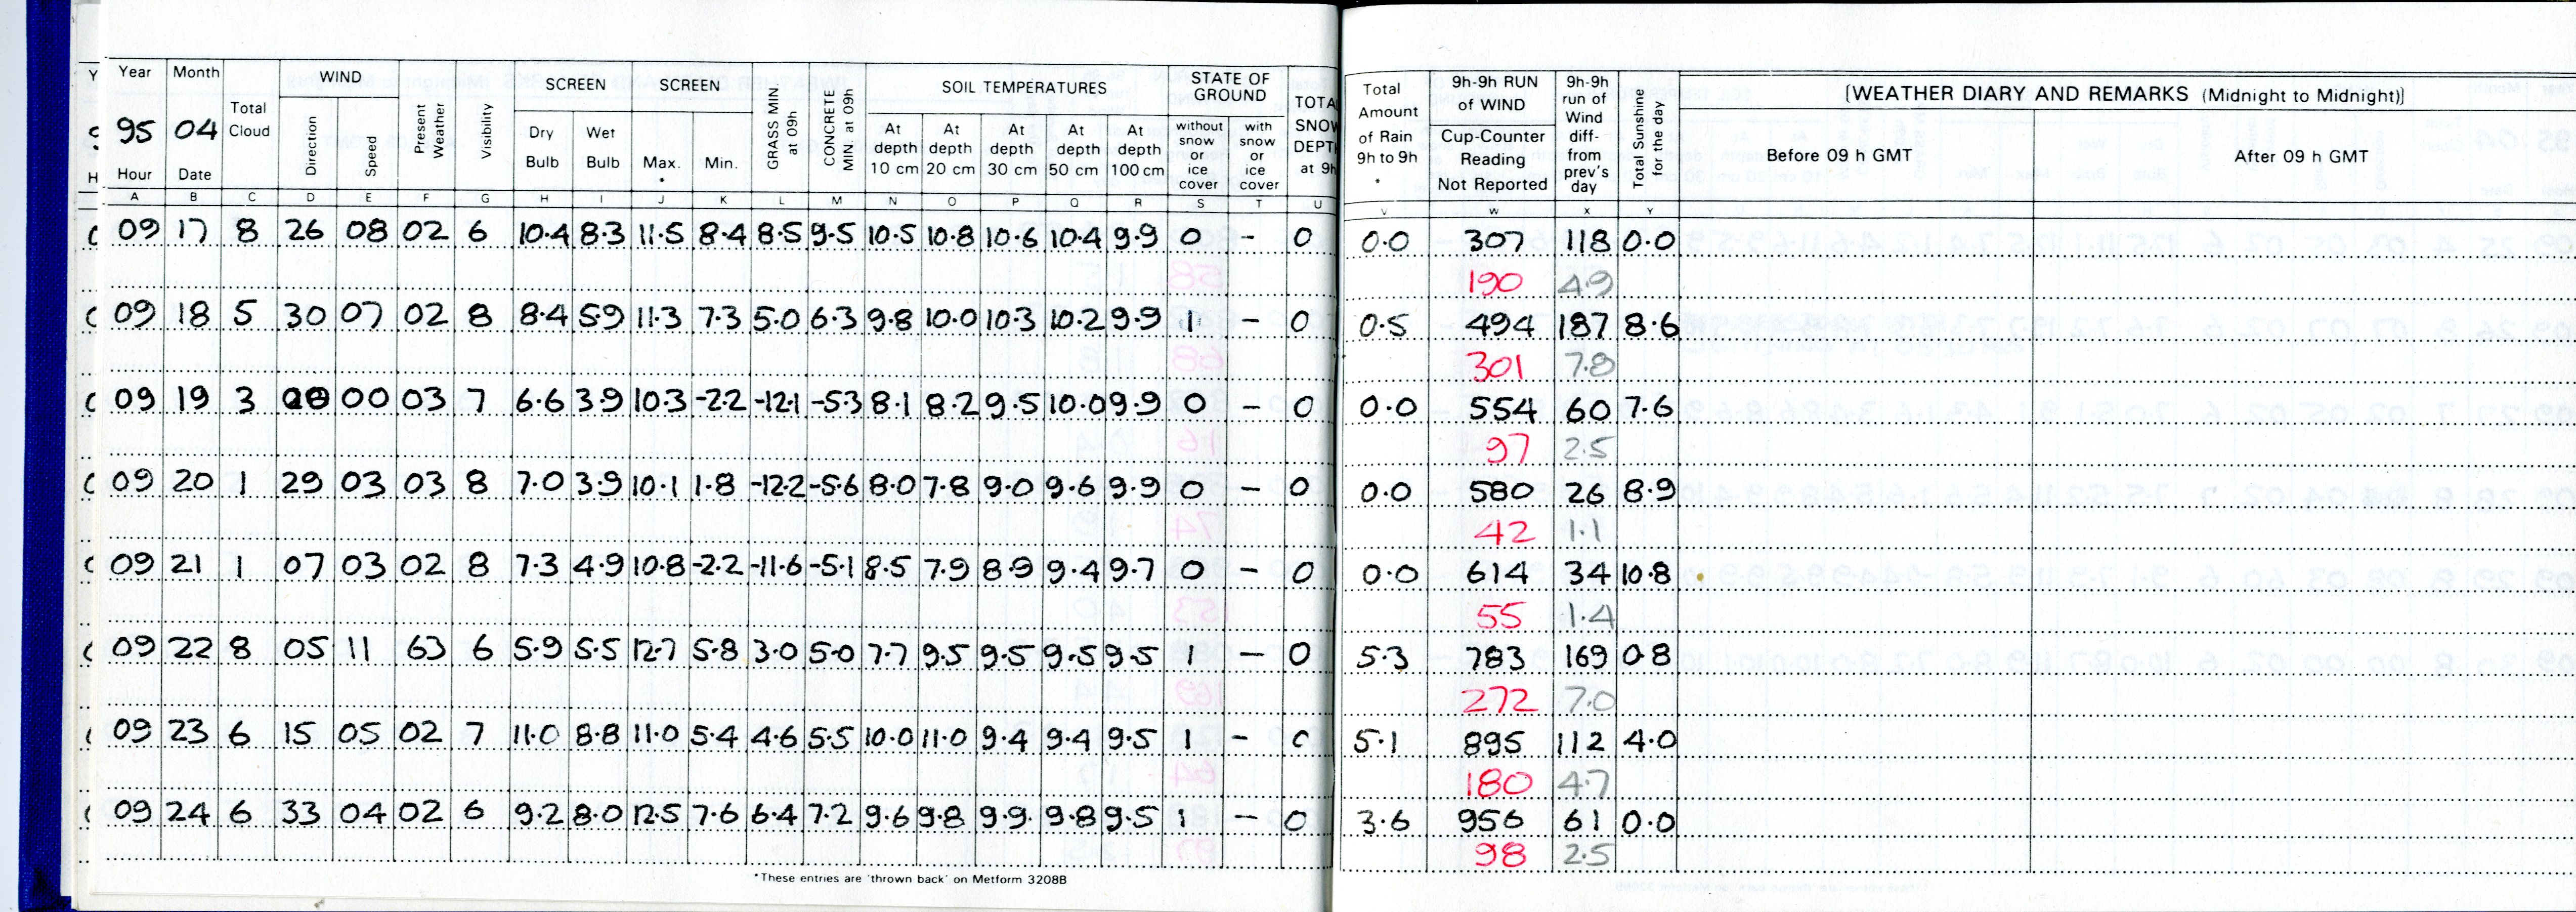 Year Month WIND SCREEN SCREEN SOIL TEMPERATURES STATE OF GROUND
95 04 Total Cloud Direction Speed Present Weather Visibility Dry Bulb Wet Bulb Max. * Min. GRASS MIN. at 09h CONCRETE MIN at 09h At depth 10 cm At depth 20 cm At depth 30 cm At depth 50 cm At depth 100 cm without snow or ice cover with snow or ice cover at 9h
Hour Date
Total Amount of Rain 9h to 9h * 9h-9h RUN of WIND Cup-Counter Reading Not Reported 9h-9h run of Wind diff- from prev's day Total Sunshine for the day [WEATHER DIARY AND REMARKS (Midnight to Midnight)]
Before 09 h GMT After 09 h GMT
A B C D E F G H I J K L M N O P Q R S T U V W X Y
09 17 8 26 08 02 6 10.4 8.3 11.5 8.4 8.5 9.5 10.5 10.8 10.6 10.4 9.9 0 - 0 0.0 307 118 0.0
190 4.9
09 18 5 30 07 02 8 8.4 5.9 11.3 7.3 5.0 6.3 9.8 10.0 10.3 10.2 9.9 1 - 0 0.5 494 187 8.6
301 7.8
09 19 3 00 00 03 7 6.6 3.9 10.3 -2.2 -12.1 -5.3 8.1 8.2 9.5 10.0 9.9 0 - 0 0.0 554 60 7.6
97 2.5
09 20 1 29 03 03 8 7.0 3.9 10.1 1.8 -12.2 -5.6 8.0 7.8 9.0 9.6 9.9 0 - 0 0.0 580 26 8.9
42 1.1
09 21 1 07 03 02 8 7.3 4.9 10.8 -2.2 -11.6 -5.1 8.5 7.9 8.9 9.4 9.7 0 - 0 0.0 614 34 10.8
55 1.4
09 22 8 05 11 63 6 5.9 5.5 12.7 5.8 3.0 5.0 7.7 9.5 9.5 9.5 9.5 1 - 0 5.3 783 169 0.8
272 7.0
09 23 6 15 05 02 7 11.0 8.8 11.0 5.4 4.6 5.5 10.0 11.0 9.4 9.4 9.5 1 - 0 5.1 895 112 4.0
180 4.7
09 24 6 33 04 02 6 9.2 8.0 12.5 7.6 6.4 7.2 9.6 9.8 9.9 9.8 9.5 1 - 0 3.6 956 61 0.0
98 2.5
*These entries are 'thrown back' on Metform 3208B